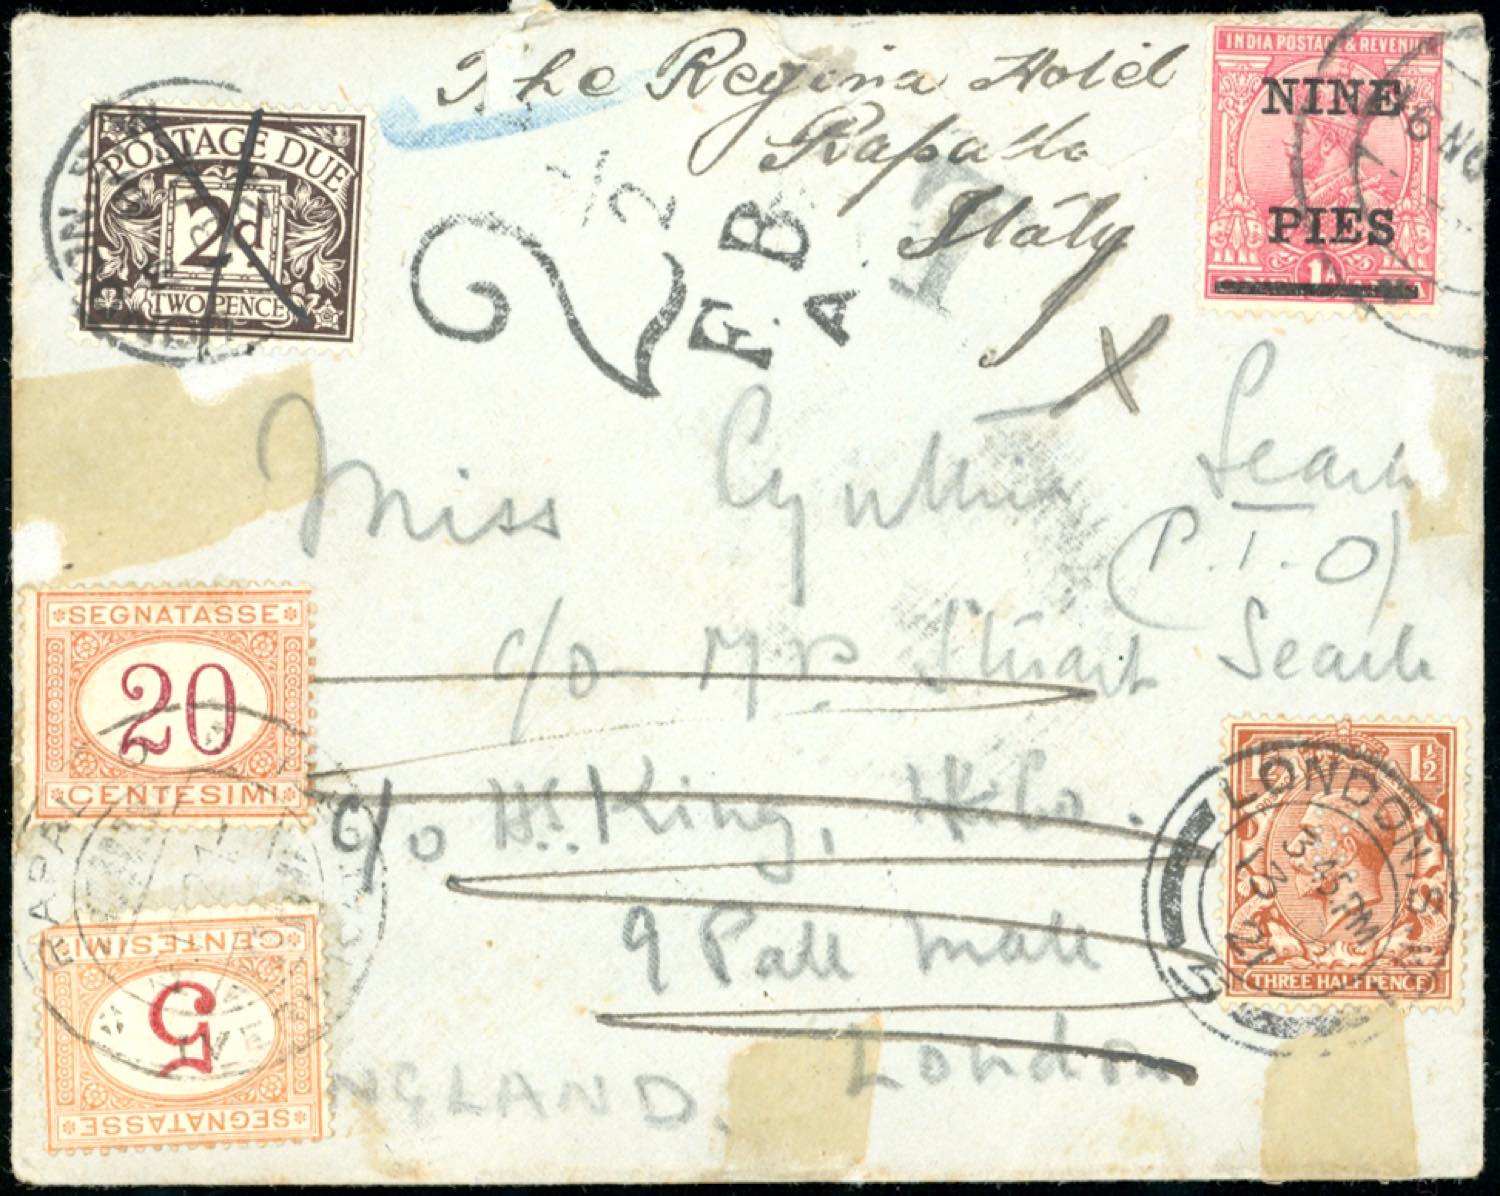 The Regina Hotel
Rapallo
Italy
INDIA POSTAGE & REVENUE
NINE
PIES
POSTAGE DUE
2d
TWO PENCE
2 1/2
F.B.
A
T
Miss Cynthia Searle
(P.T.O)
c/o Mr Stuart Searle
c/o H.S. King, & Co.
9 Pall Mall
London
ENGLAND.
*SEGNATASSE*
20
*CENTESIMI*
*SEGNATASSE*
5
*CENTESIMI*
1½
THREE HALFPENCE
LONDON.S.W
3.45 PM